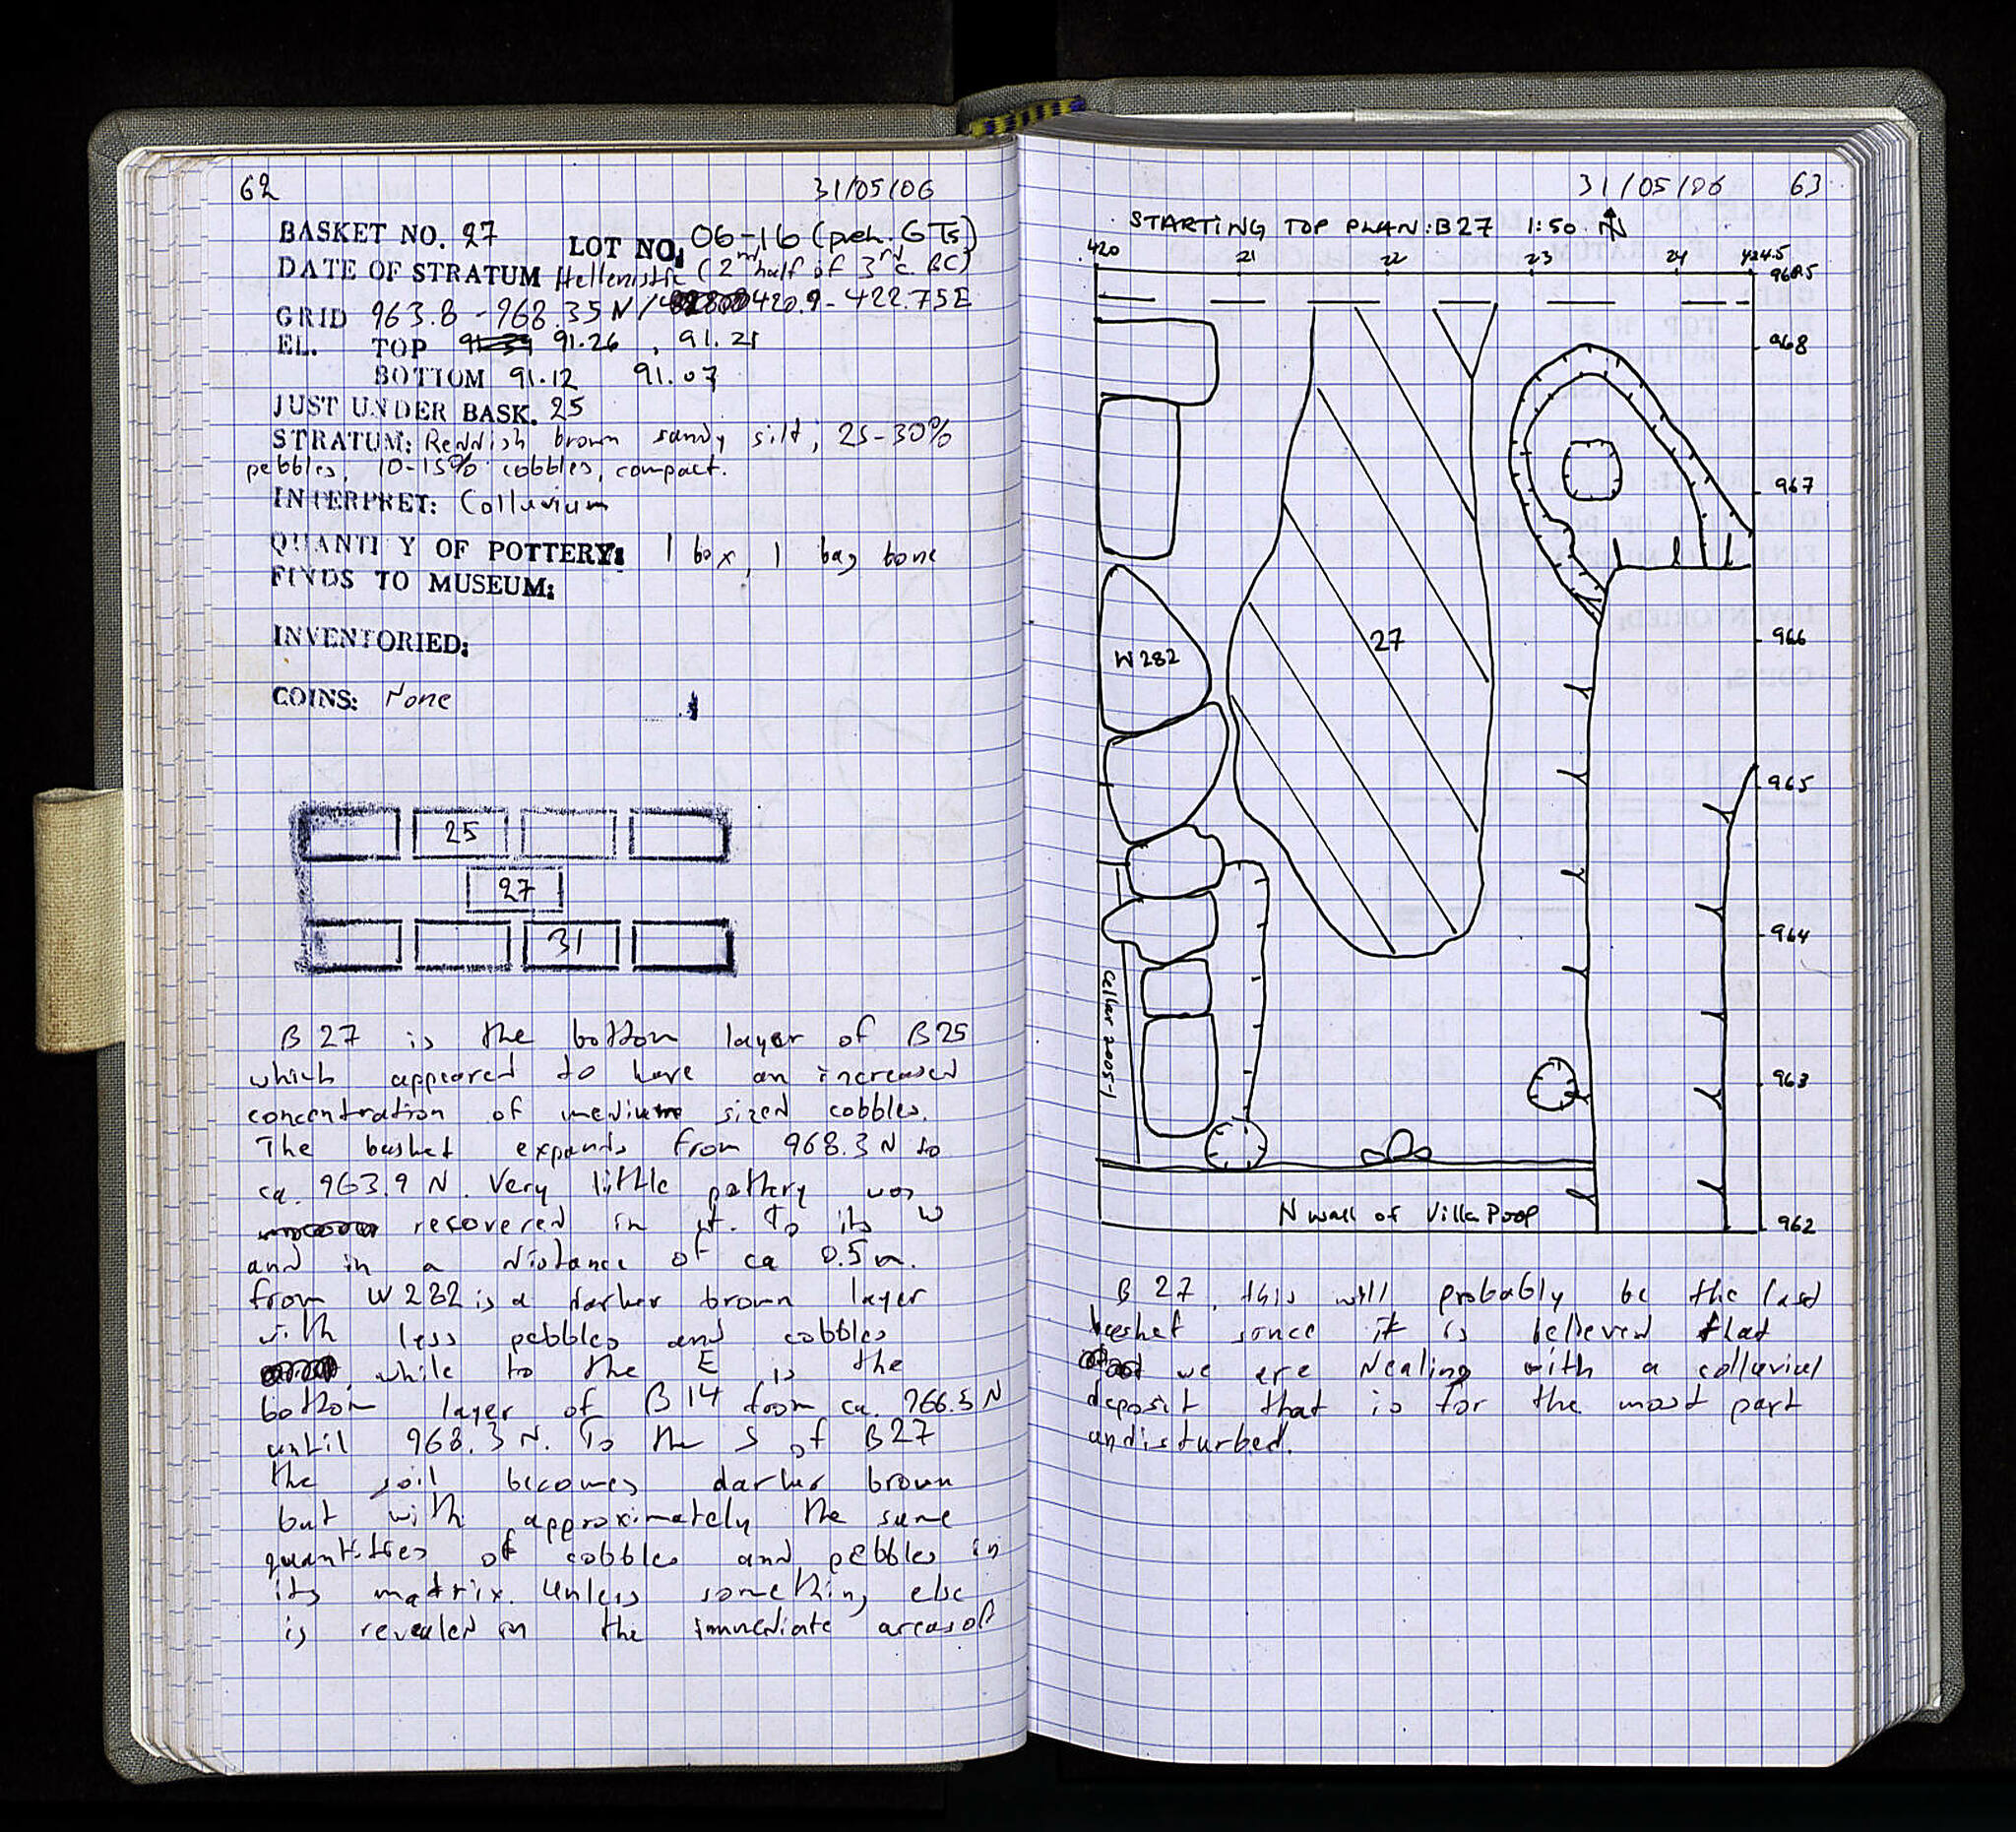 62
31/05/06
BASKET NO. 27 LOT NO. 06-16 (prel. GTs)
DATE OF STRATUM Hellenistic (2nd half of 3rd c. BC)
GRID 963.8 - 968.35 N / 420.9 - 422.75E
EL. TOP 91.26 , 91.21
BOTTOM 91.12 91.07
JUST UNDER BASK. 25
STRATUM: Reddish brown sandy silt, 25-30%
pebbles, 10-15% cobbles, compact.
INTERPRET: Colluvium
QUANTITY OF POTTERY: 1 box, 1 bag bone
FINDS TO MUSEUM:
INVENTORIED:
COINS: None
25
27
31
B27 is the bottom layer of B25
which appeared to have an increased
concentration of medium sized cobbles.
The basket expands from 968.3 N to
ca. 963.9 N. Very little pottery was
recovered in it. To its W
and in a distance of ca 0.5m.
from W282 is a darker brown layer
with less pebbles and cobbles
, while to the E is the
bottom layer of B14 from ca. 966.5 N
until 968.3 N. To the S of B27
the soil becomes darker brown
but with approximately the same
quantities of cobbles and pebbles in
its matrix. Unless something else
is revealed in the immediate areas of
31/05/06 63
STARTING TOP PLAN: B27 1:50 N
420 21 22 23 24 424.5
968.5
968
967
966
W282
27
965
964
Cellar 2005-1
963
N wall of Villa Poop
962
B 27, this will probably be the last
basket since it is believed that
we are dealing with a colluvial
deposit that is for the most part
undisturbed.